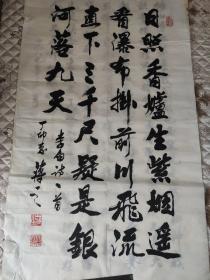 日照香爐生紫烟遥
看瀑布掛前川飛流
直下三千尺疑是銀
河落九天
李白詩一首
丁卯春 蒋